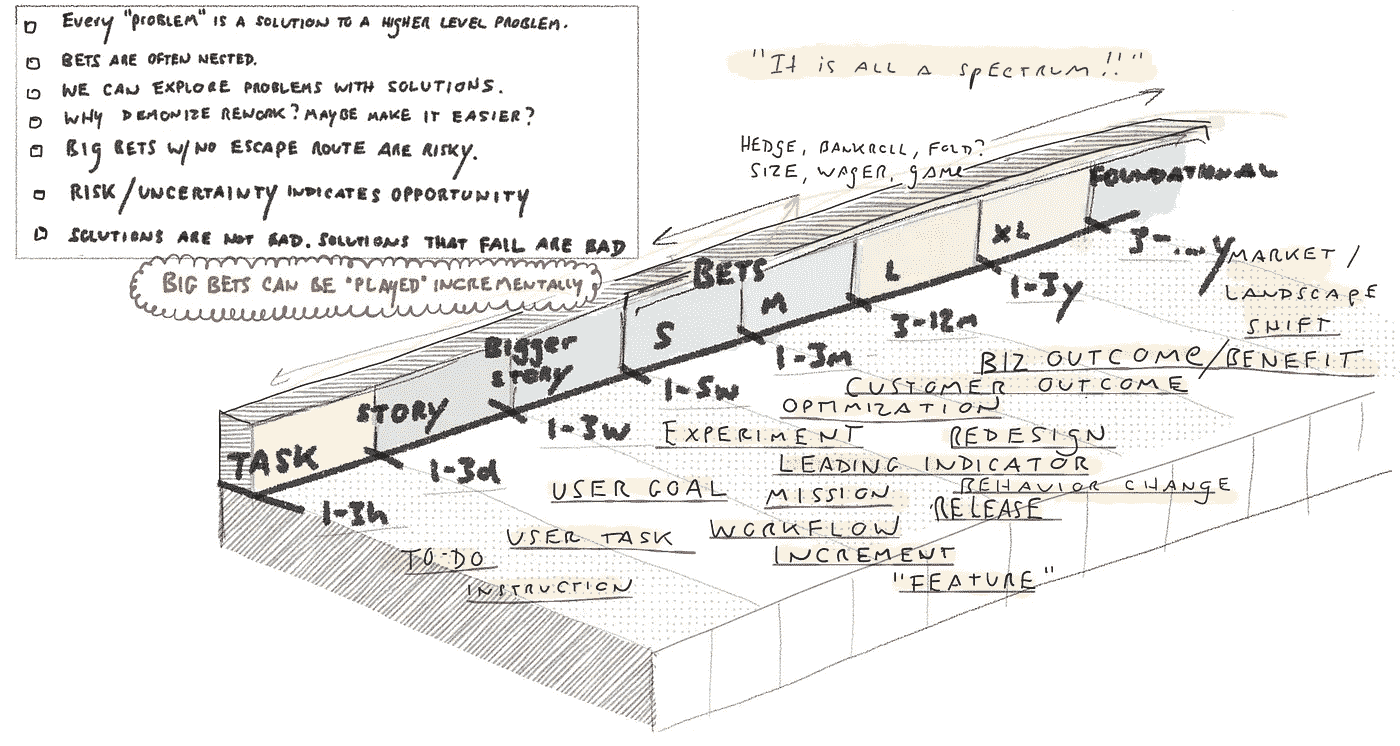 Every "problem" is a solution to a higher level problem.
Bets are often nested.
We can explore problems with solutions.
Why demonize rework? Maybe make it easier?
Big bets w/ no escape route are risky.
Risk/uncertainty indicates opportunity
Solutions are not bad. Solutions that fail are bad
Big bets can be "played" incrementally
"It is all a spectrum!!"
Hedge, bankroll, fold?
Size, wager, game
Foundational
XL
L
Bets
M
S
Bigger
story
Story
Task
3-...y
1-3y
3-12m
1-3m
1-5w
1-3w
1-3d
1-3h
Market /
landscape
shift
Biz outcome/benefit
Customer outcome
Optimization
Experiment
Redesign
Leading indicator
Behavior change
User goal
Mission
Release
User task
Workflow
To-do
Increment
Instruction
"Feature"